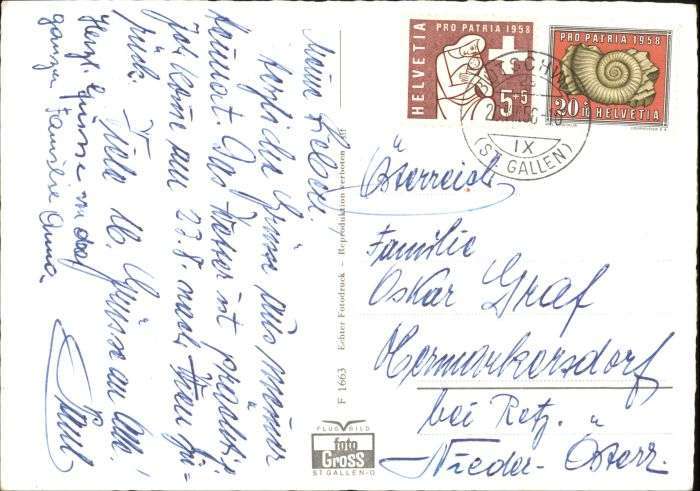 Meine Lieben!
Herzliche Grüsse aus meiner
Heimat. Das Wetter ist prachtvoll.
Ich komme am 23.8. nach Wien zu-
rück. Viele lb. Grüsse an alle!
Herzl. Grüsse an das
ganze Familie Anna
PRO PATRIA 1958
HELVETIA
5+5
PRO PATRIA 1958
20
HELVETIA
IX
(ST. GALLEN)
Österreich
Familie
Oskar Graf
Hermarkersdorf
bei Retz.
Nieder-Österr.
F 1663 Echter Fotodruck – Reproduktion verboten
FLUGBILD
foto
Gross
ST GALLEN-O